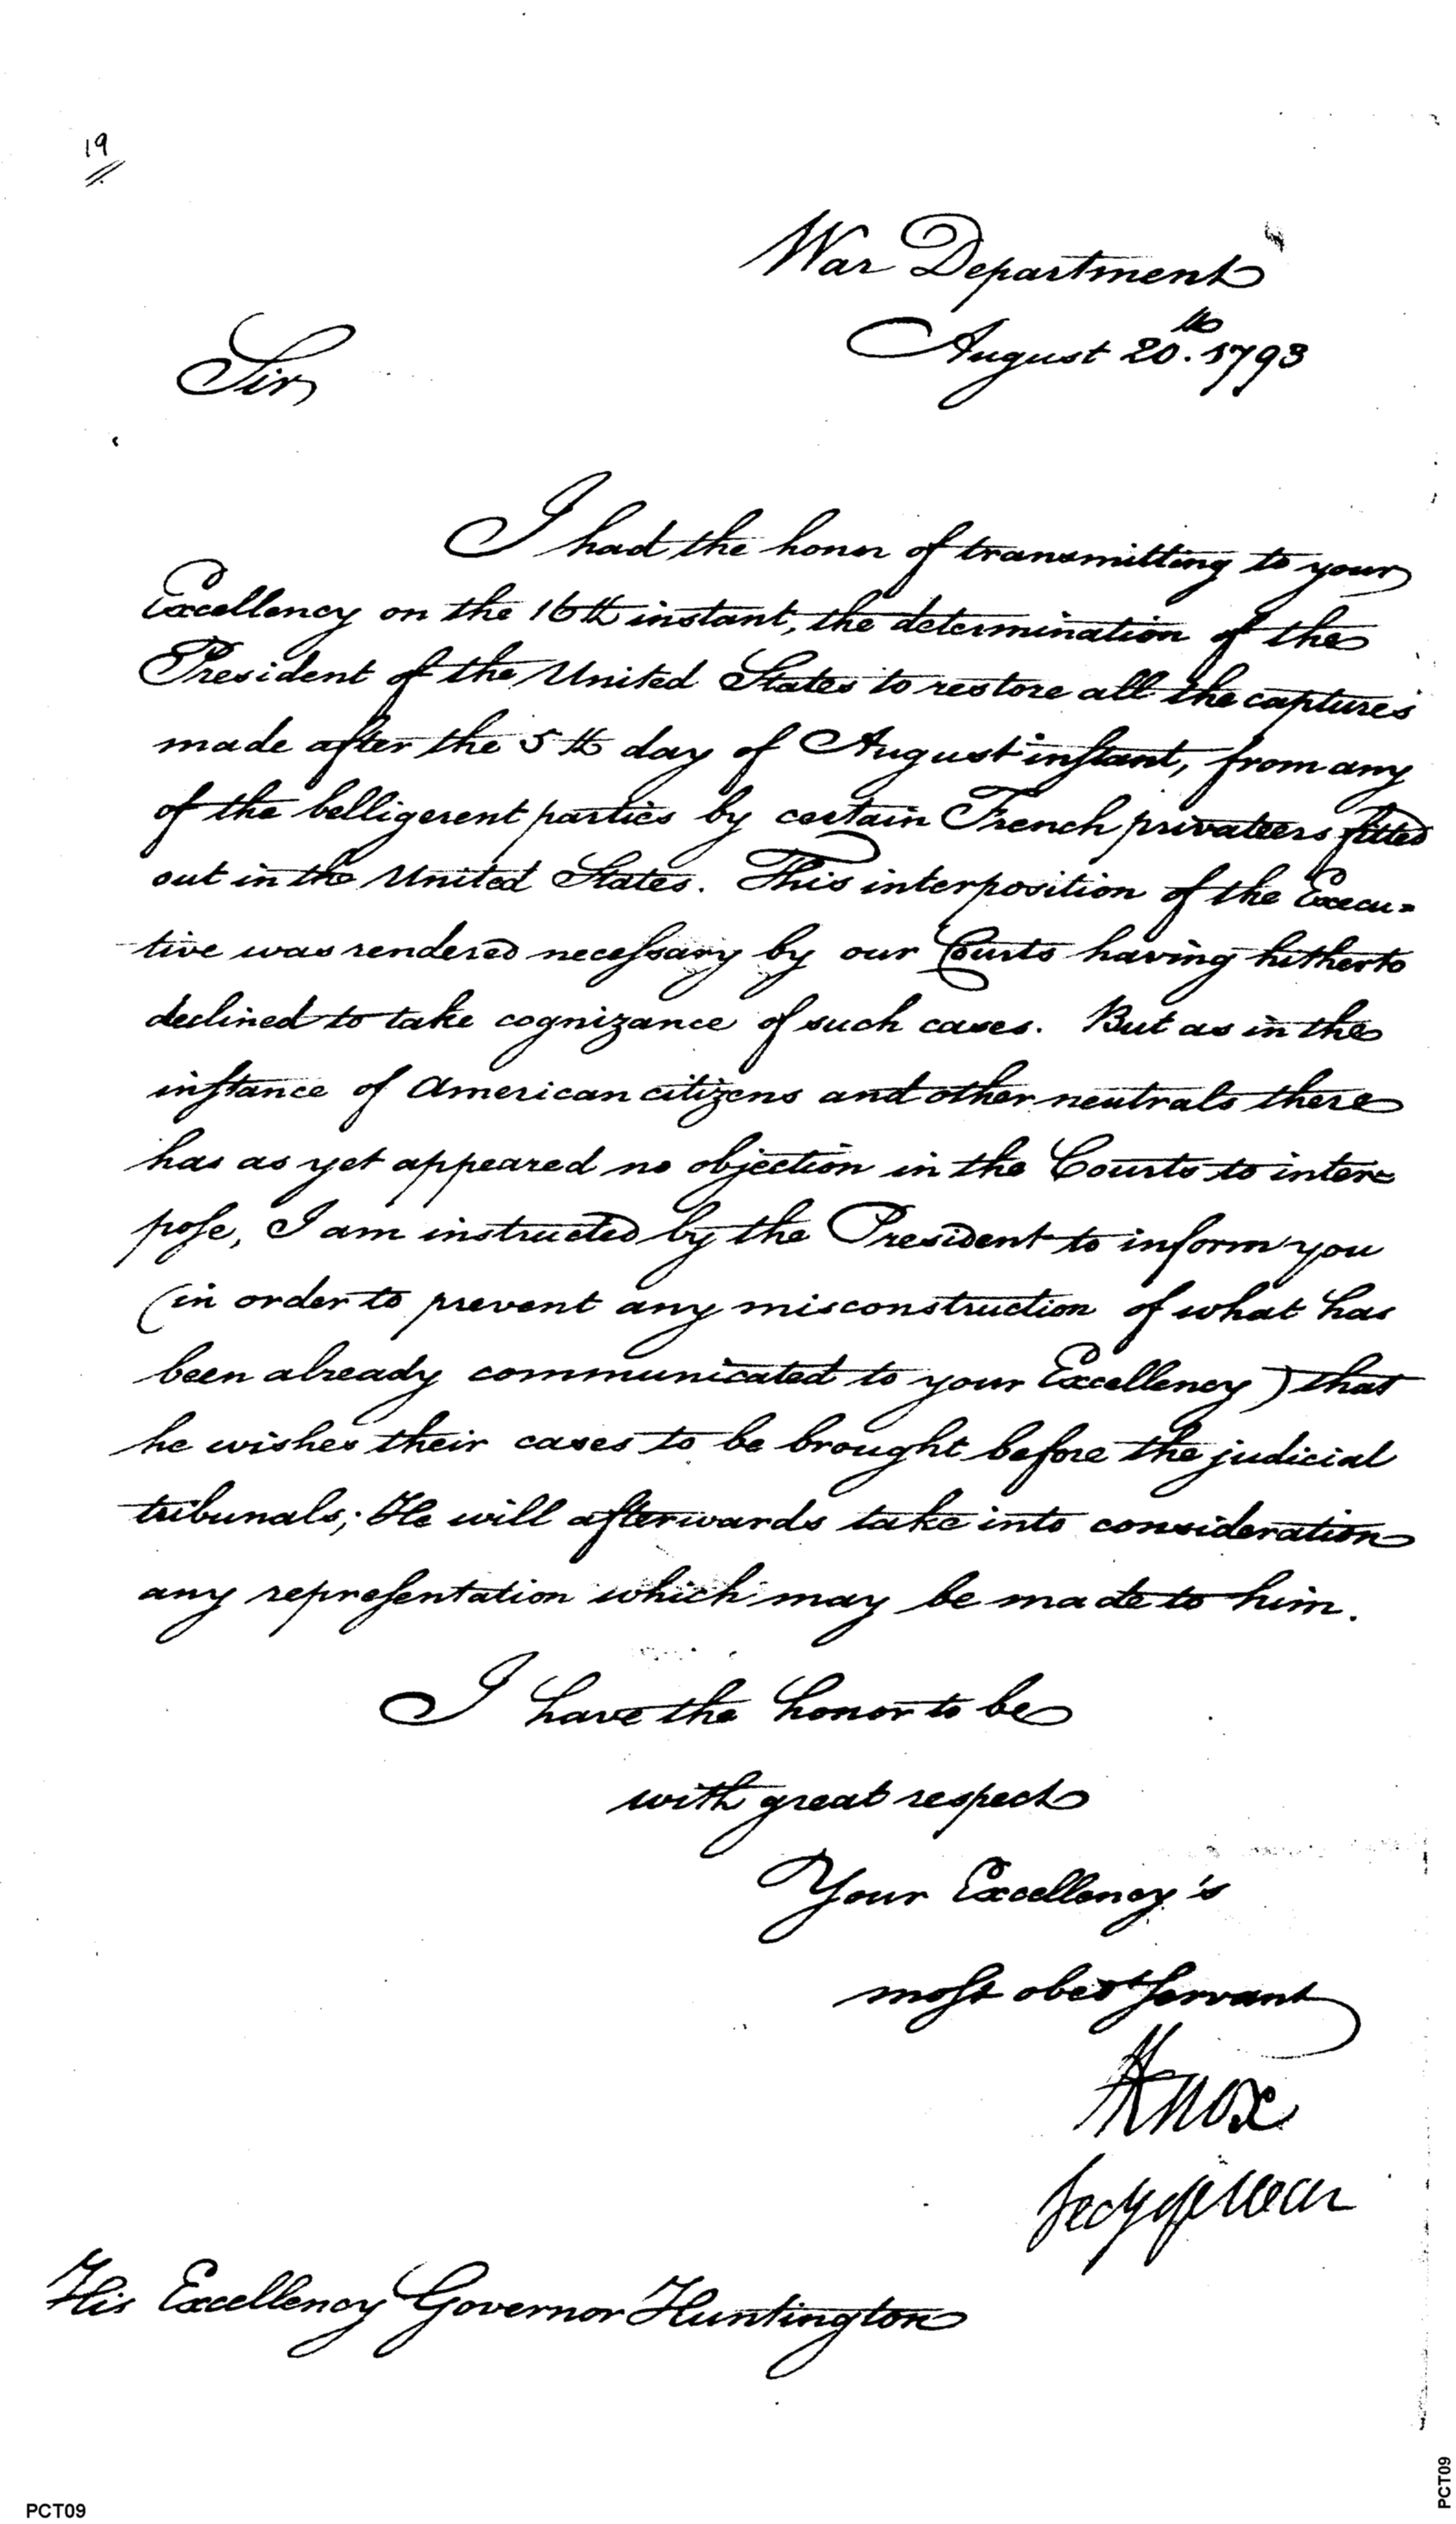 19
War Department
August 20th. 1793
Sir
I had the honor of transmitting to your
Excellency on the 16th instant, the determination of the
President of the United States to restore all the captures
made after the 5th day of August instant, from any
of the belligerent parties by certain French privateers fitted
out in the United States. This interposition of the Execu=
tive was rendered necessary by our Courts having hitherto
declined to take cognizance of such cases. But as in the
instance of American citizens and other neutrals there
has as yet appeared no objection in the Courts to inter=
pose, I am instructed by the President to inform you
(in order to prevent any misconstruction of what has
been already communicated to your Excellency) that
he wishes their cases to be brought before the judicial
tribunals; He will afterwards take into consideration
any representation which may be made to him.
I have the honor to be
with great respect
Your Excellency's
most obed servant
HKnox
Secy of War
His Excellency Governor Huntington
PCT09
PCT09